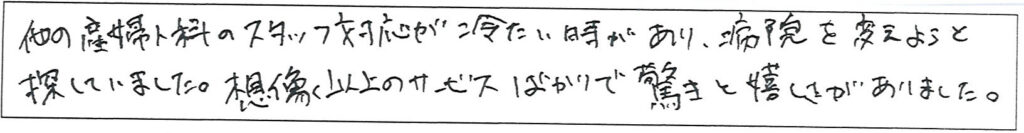 他の産婦人科のスタッフ対応が冷たい時があり、病院を変えようと
探していました。想像以上のサービスばかりで驚きと嬉しさがありました。